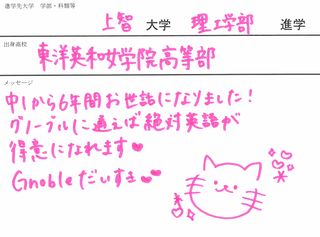 進学先大学 学部・科類等
上智 大学 理工学部 進学
出身高校
東洋英和女学院高等部
メッセージ
中1から6年間お世話になりました!
グノーブルに通えば絶対英語が
得意になれます♥♥
Gnobleだいすき♥♥